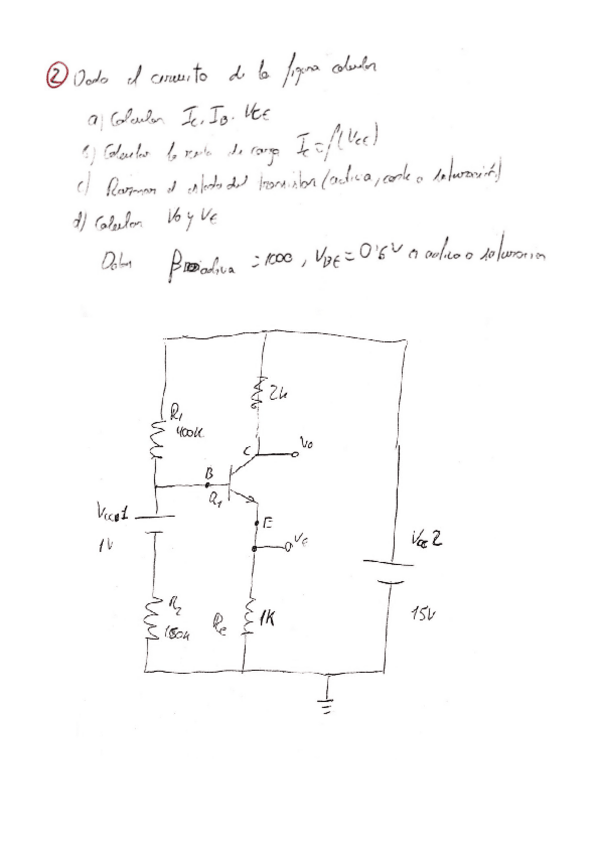 ② Dado el circuito de la figura calcular
a) Calcular Ic, IB, VCE
b) Calcular la recta de carga Ic = f(VCE)
c) Razonar el estado del transistor (activa, corte o saturación)
d) Calcular Vo y VE
Datos β activa = 1000, VBE = 0'6V en activa o saturacion
R1
400K
2k
C
Vo
B
Q1
Vcc1
1V
E
VE
Vcc2
15V
R2
Re
1K